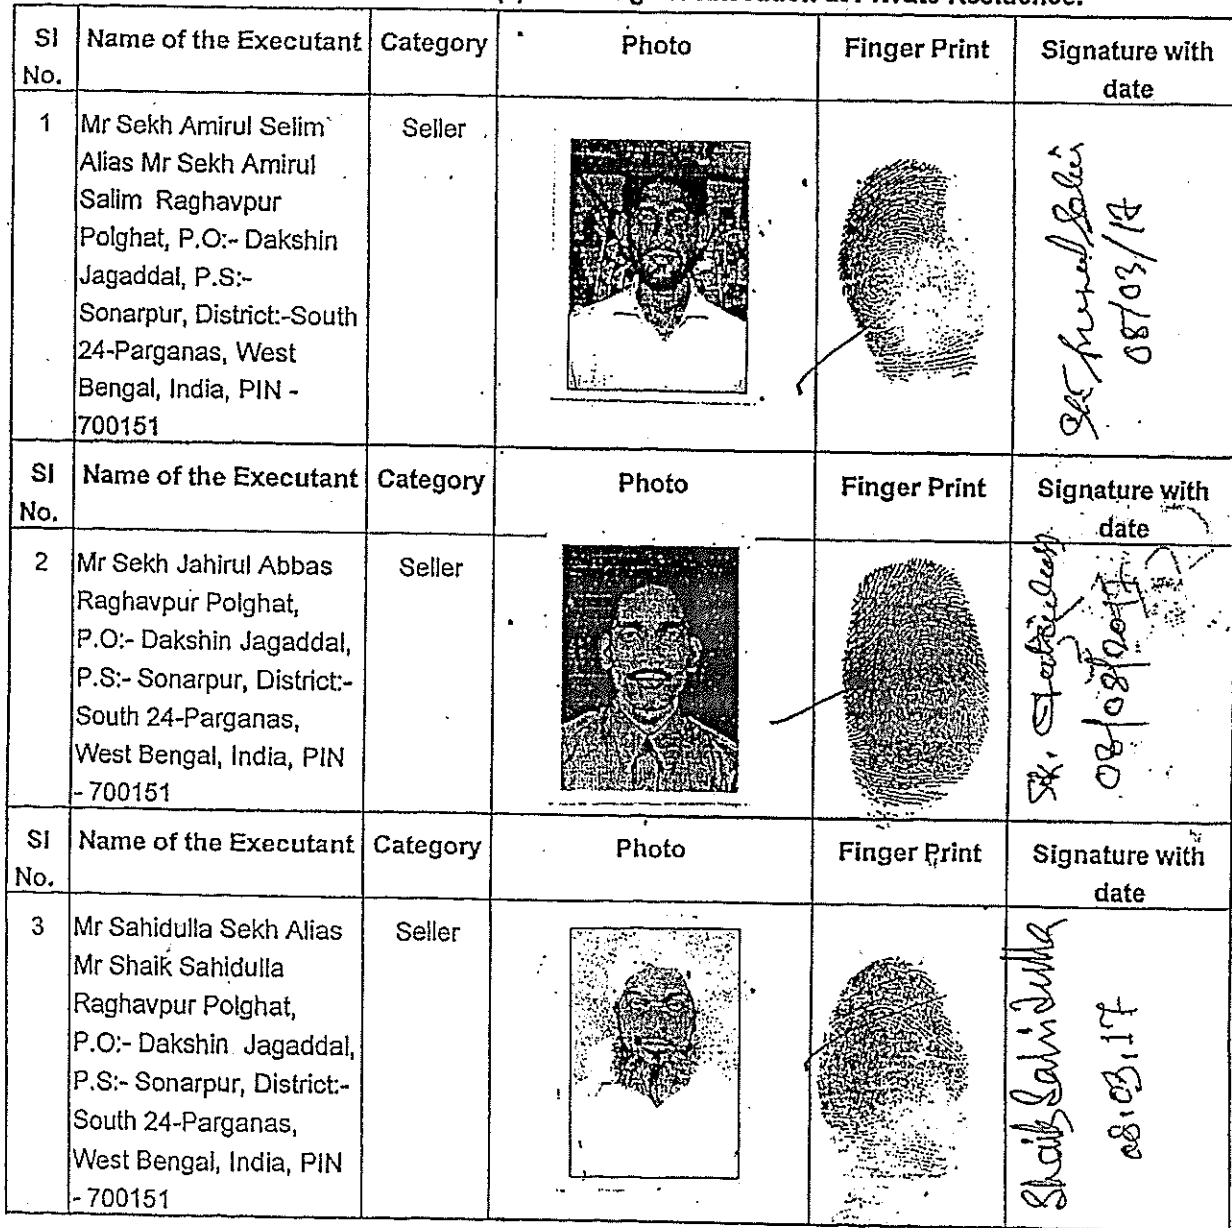 Private Residence.
Sl No.
Name of the Executant
Category
Photo
Finger Print
Signature with date
1
Mr Sekh Amirul Selim
Alias Mr Sekh Amirul
Salim Raghavpur
Polghat, P.O:- Dakshin
Jagaddal, P.S:-
Sonarpur, District:-South
24-Parganas, West
Bengal, India, PIN -
700151
Seller
08/03/17
Sl No.
Name of the Executant
Category
Photo
Finger Print
Signature with date
2
Mr Sekh Jahirul Abbas
Raghavpur Polghat,
P.O:- Dakshin Jagaddal,
P.S:- Sonarpur, District:-
South 24-Parganas,
West Bengal, India, PIN
- 700151
Seller
Sk.
Sl No.
Name of the Executant
Category
Photo
Finger Print
Signature with date
3
Mr Sahidulla Sekh Alias
Mr Shaik Sahidulla
Raghavpur Polghat,
P.O:- Dakshin Jagaddal,
P.S:- Sonarpur, District:-
South 24-Parganas,
West Bengal, India, PIN
- 700151
Seller
Shaik Sahidulla
08.03.17